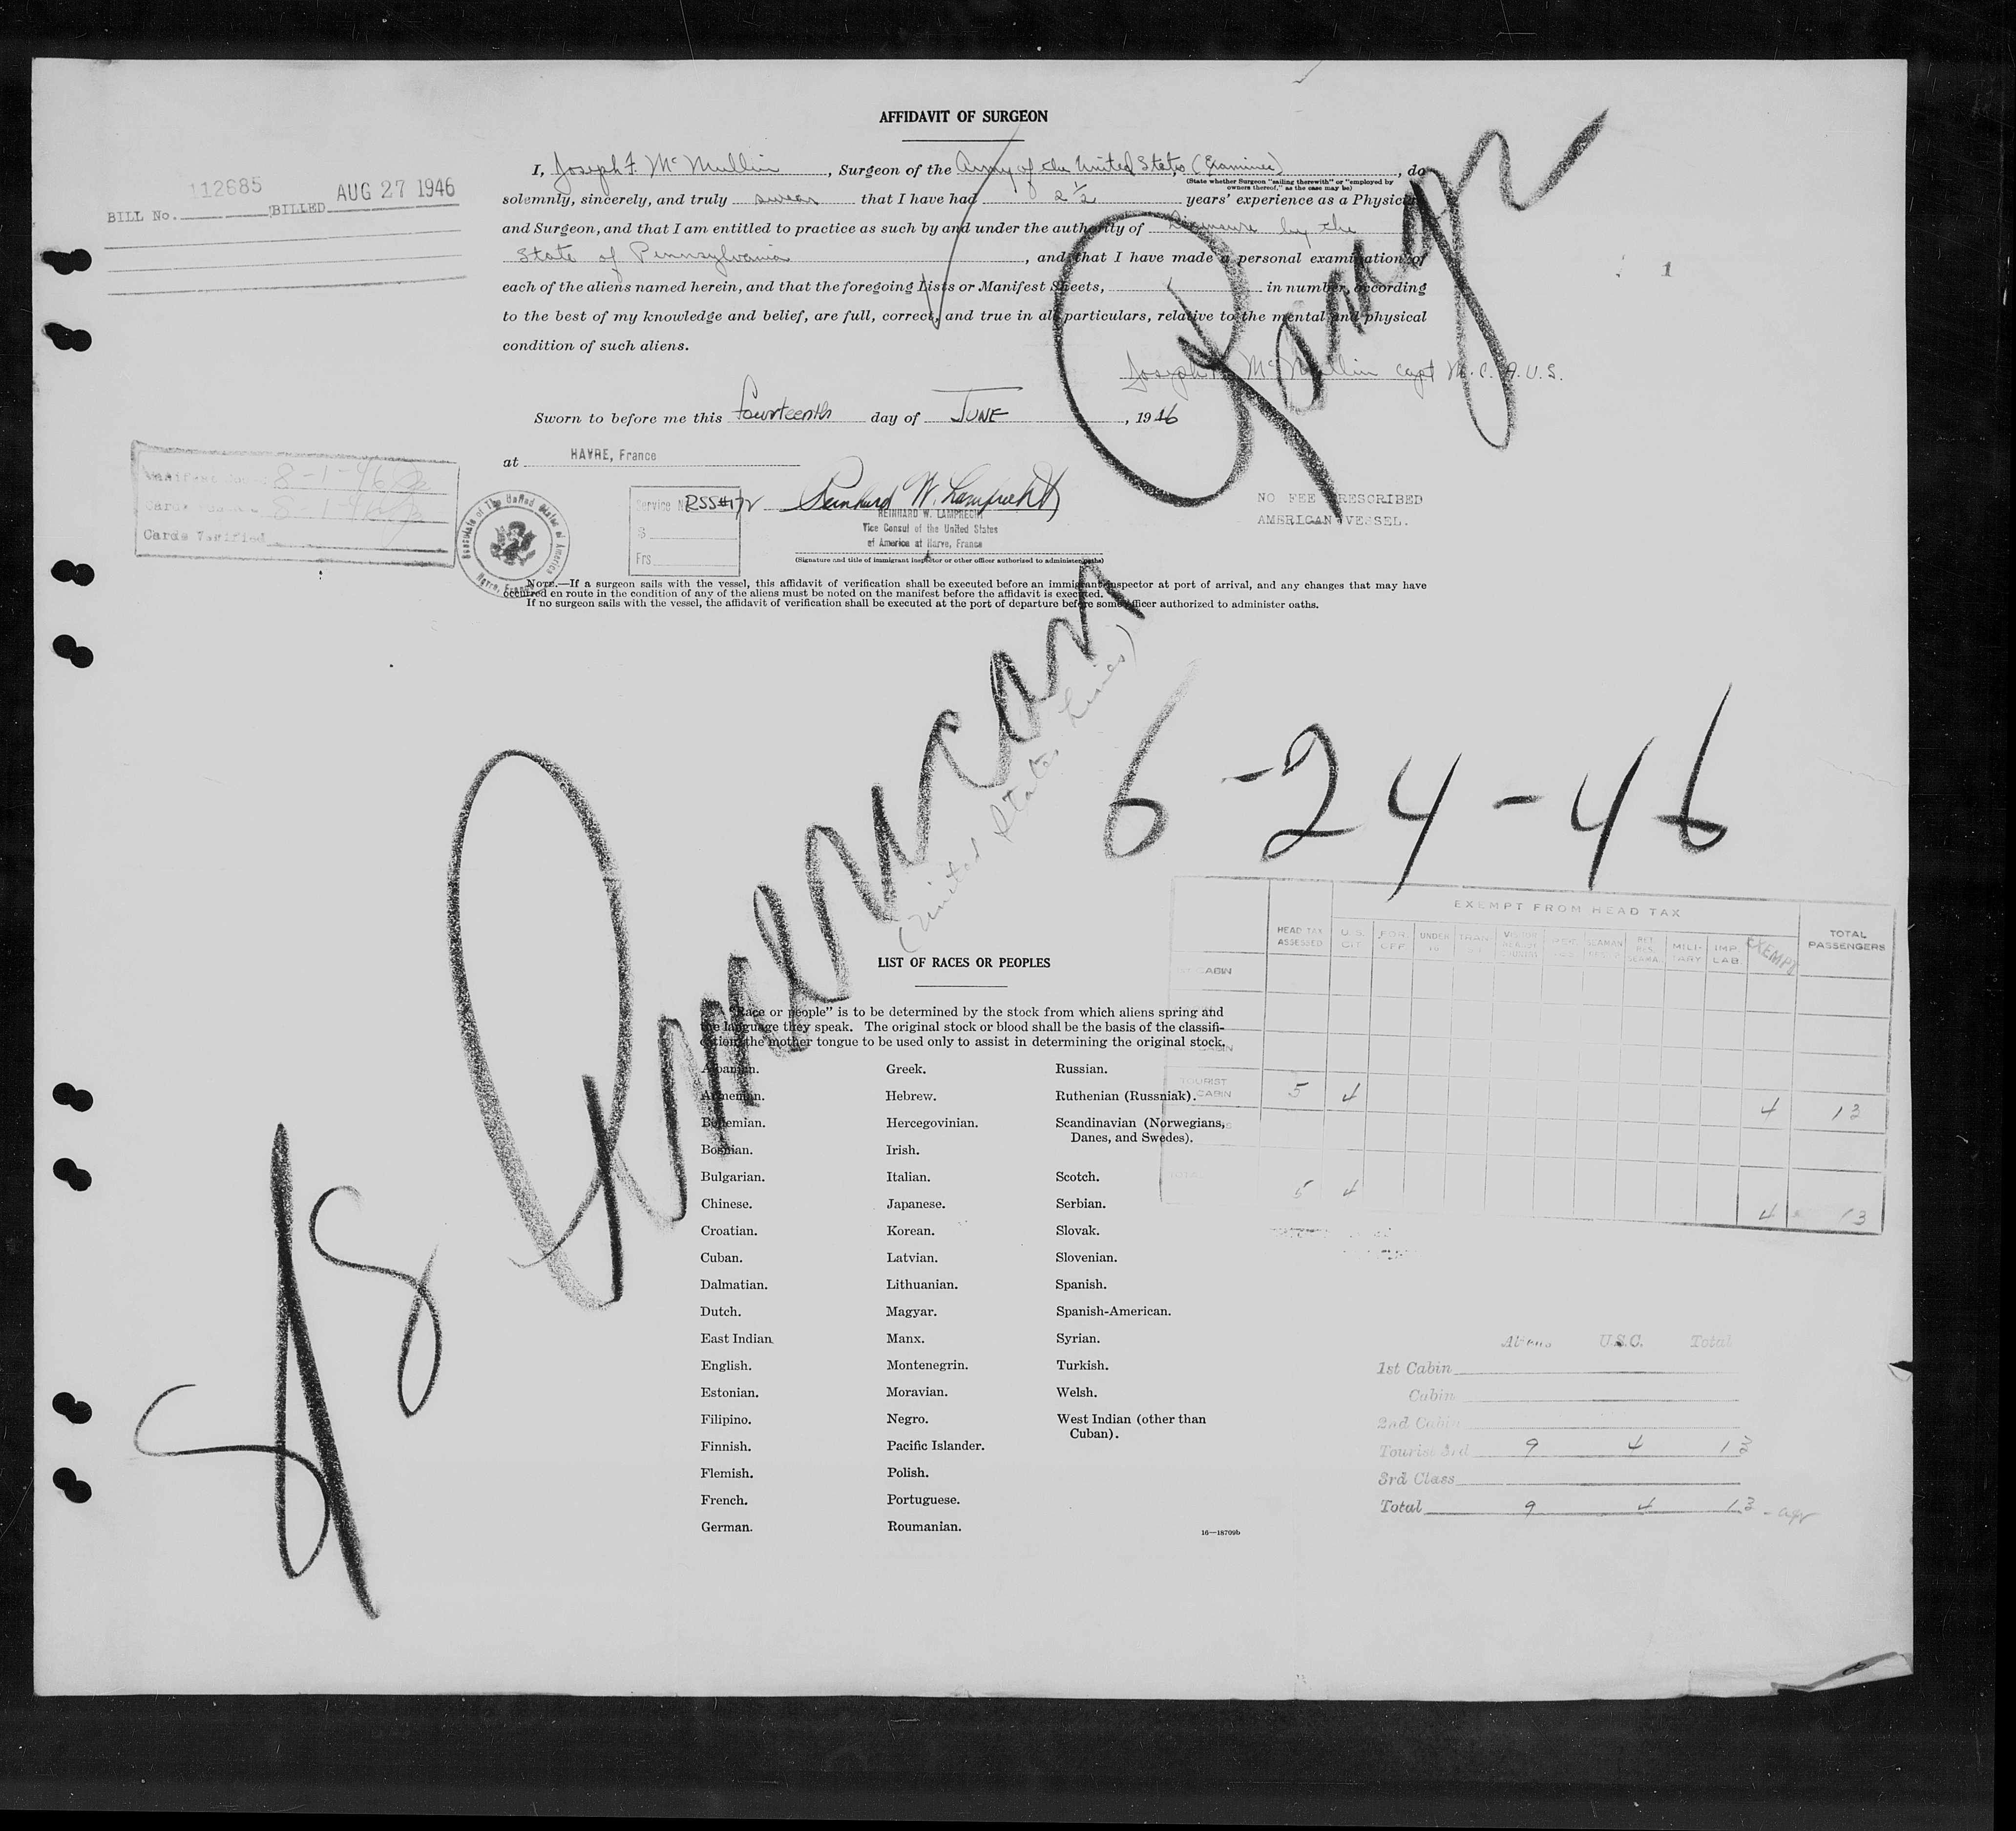 AFFIDAVIT OF SURGEON
I, Joseph F. McMullin, Surgeon of the Army of the United States (Examiner), do
(State whether Surgeon "sailing therewith" or "employed by
owners thereof," as the case may be)
solemnly, sincerely, and truly swear that I have had 2 1/2 years' experience as a Physician
and Surgeon, and that I am entitled to practice as such by and under the authority of licensure by the
State of Pennsylvania, and that I have made a personal examination of
each of the aliens named herein, and that the foregoing Lists or Manifest Sheets, in number, according
to the best of my knowledge and belief, are full, correct, and true in all particulars, relative to the mental and physical
condition of such aliens.
Joseph F. McMullin Capt M.C. A.U.S.
Sworn to before me this fourteenth day of JUNE, 1946
at HAVRE, France
112685
BILL No. BILLED AUG 27 1946
1
8-1-46
Cards 8-1-46
Cards Verified
Consulate of The United States of America
Havre, France
Service No. RSS#172
$
Frs.
Reinhard W. Lamprecht
REINHARD W. LAMPRECHT
Vice Consul of the United States
of America at Havre, France
(Signature and title of immigrant inspector or other officer authorized to administer oaths)
NO FEE PRESCRIBED
AMERICAN VESSEL.
NOTE.—If a surgeon sails with the vessel, this affidavit of verification shall be executed before an immigrant inspector at port of arrival, and any changes that may have
occurred en route in the condition of any of the aliens must be noted on the manifest before the affidavit is executed.
If no surgeon sails with the vessel, the affidavit of verification shall be executed at the port of departure before some officer authorized to administer oaths.
SS American Ranger
(United States Lines)
6-24-46
EXEMPT FROM HEAD TAX
HEAD TAX ASSESSED U.S. CIT. FOR. OFF. UNDER 16 TRAN SEAMAN MILITARY IMP. LAB. EXEMPT TOTAL PASSENGERS
CABIN
CABIN
TOURIST CABIN 5 4 4 13
TOTAL 5 4 4 13
LIST OF RACES OR PEOPLES
"Race or people" is to be determined by the stock from which aliens spring and
the language they speak. The original stock or blood shall be the basis of the classifi-
cation, the mother tongue to be used only to assist in determining the original stock.
Albanian.
Armenian.
Bohemian.
Bosnian.
Bulgarian.
Chinese.
Croatian.
Cuban.
Dalmatian.
Dutch.
East Indian
English.
Estonian.
Filipino.
Finnish.
Flemish.
French.
German.
Greek.
Hebrew.
Hercegovinian.
Irish.
Italian.
Japanese.
Korean.
Latvian.
Lithuanian.
Magyar.
Manx.
Montenegrin.
Moravian.
Negro.
Pacific Islander.
Polish.
Portuguese.
Roumanian.
Russian.
Ruthenian (Russniak).
Scandinavian (Norwegians,
Danes, and Swedes).
Scotch.
Serbian.
Slovak.
Slovenian.
Spanish.
Spanish-American.
Syrian.
Turkish.
Welsh.
West Indian (other than
Cuban).
16—18709b
Aliens U.S.C. Total
1st Cabin
Cabin
2nd Cabin
Tourist 3rd 9 4 13
3rd Class
Total 9 4 13